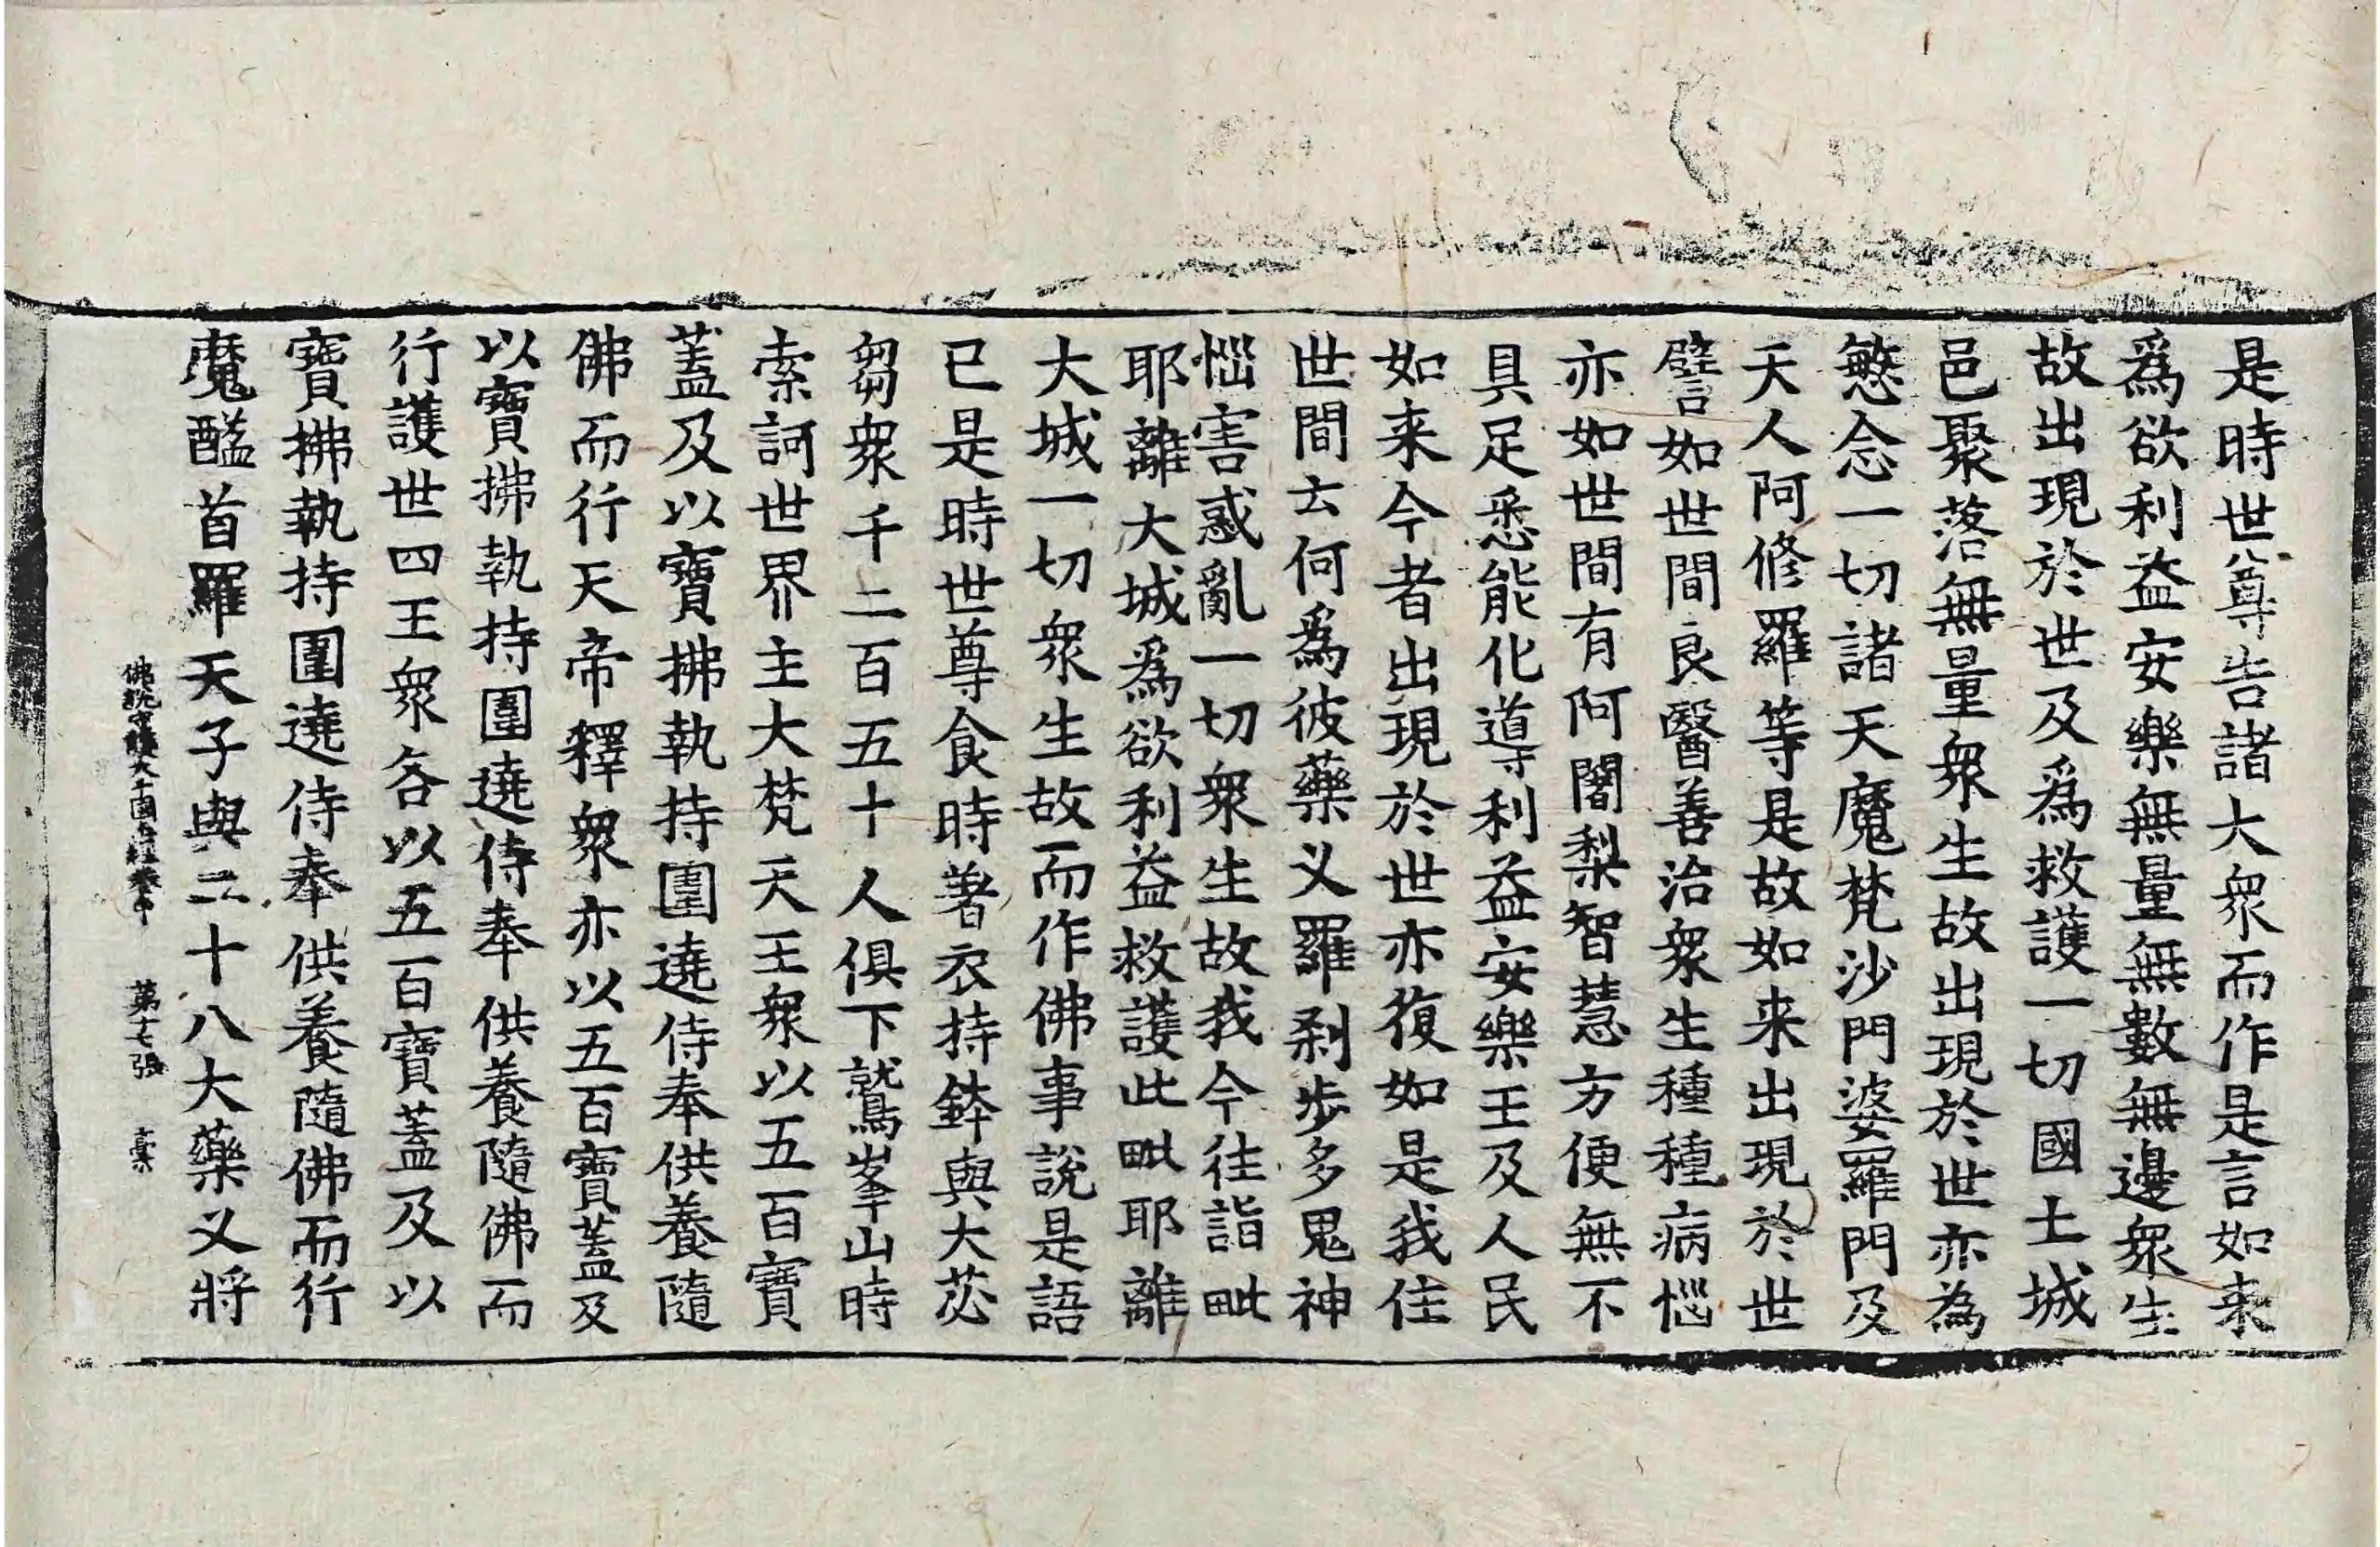 是時世尊告諸大衆而作是言如来
爲欲利益安樂無量無數無邊衆生
故出現於世及爲救護一切國土城
邑聚落無量衆生故出現於世亦為
愍念一切諸天魔梵沙門婆羅門及
天人阿修羅等是故如来出現於世
譬如世間良醫善治衆生種種病惱
亦如世間有阿闍梨智慧方便無不
具足悉能化導利益安樂王及人民
如来今者出現於世亦復如是我住
世間云何爲彼藥叉羅刹步多鬼神
惱害惑亂一切衆生故我今往詣毗
耶離大城爲欲利益救護此毗耶離
大城一切衆生故而作佛事說是語
已是時世尊食時著衣持鉢與大苾
芻衆千二百五十人俱下鷲峯山時
索訶世界主大梵天王衆以五百寶
蓋及以寶拂執持圍遶侍奉供養隨
佛而行天帝釋衆亦以五百寶蓋及
以寶拂執持圍遶侍奉供養隨佛而
行護世四王衆各以五百寶蓋及以
寶拂執持圍遶侍奉供養隨佛而行
魔醯首羅天子與二十八大藥叉將
佛說守護大千國土經卷中 第十七張 槖